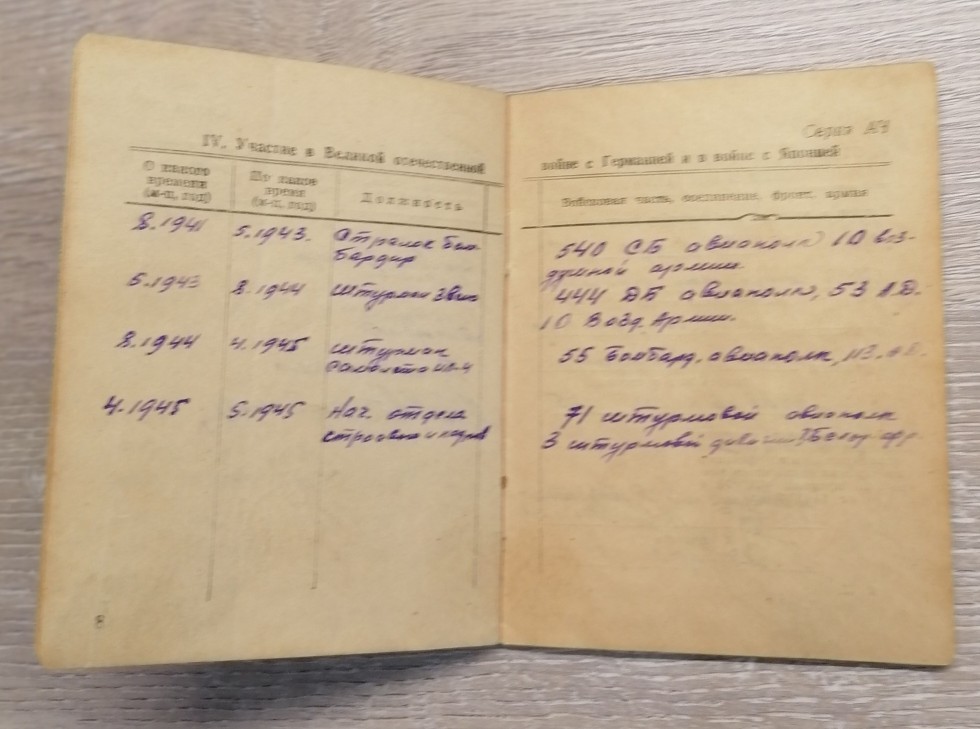 Серия АЧ
IV. Участие в Великой отечественной
войне с Германией и в войне с Японией
С какого времени (м-ц, год)
По какое время (м-ц, год)
Должность
Войсковая часть, соединение, фронт, армия
8.1941 5.1943. Стрелок бом-
бардир
540 СБ авиаполк 10 воз-
душной армии
5.1943 8.1944 штурман звена
444 ДБ авиаполк, 53 А.Д.
10 Возд. Армии.
8.1944 4.1945 штурман
55 Бомбард. авиаполк,
4.1945 5.1945 Нач. отдела
строевого и кадров
71 штурмовой авиаполк
3 штурмовой
8